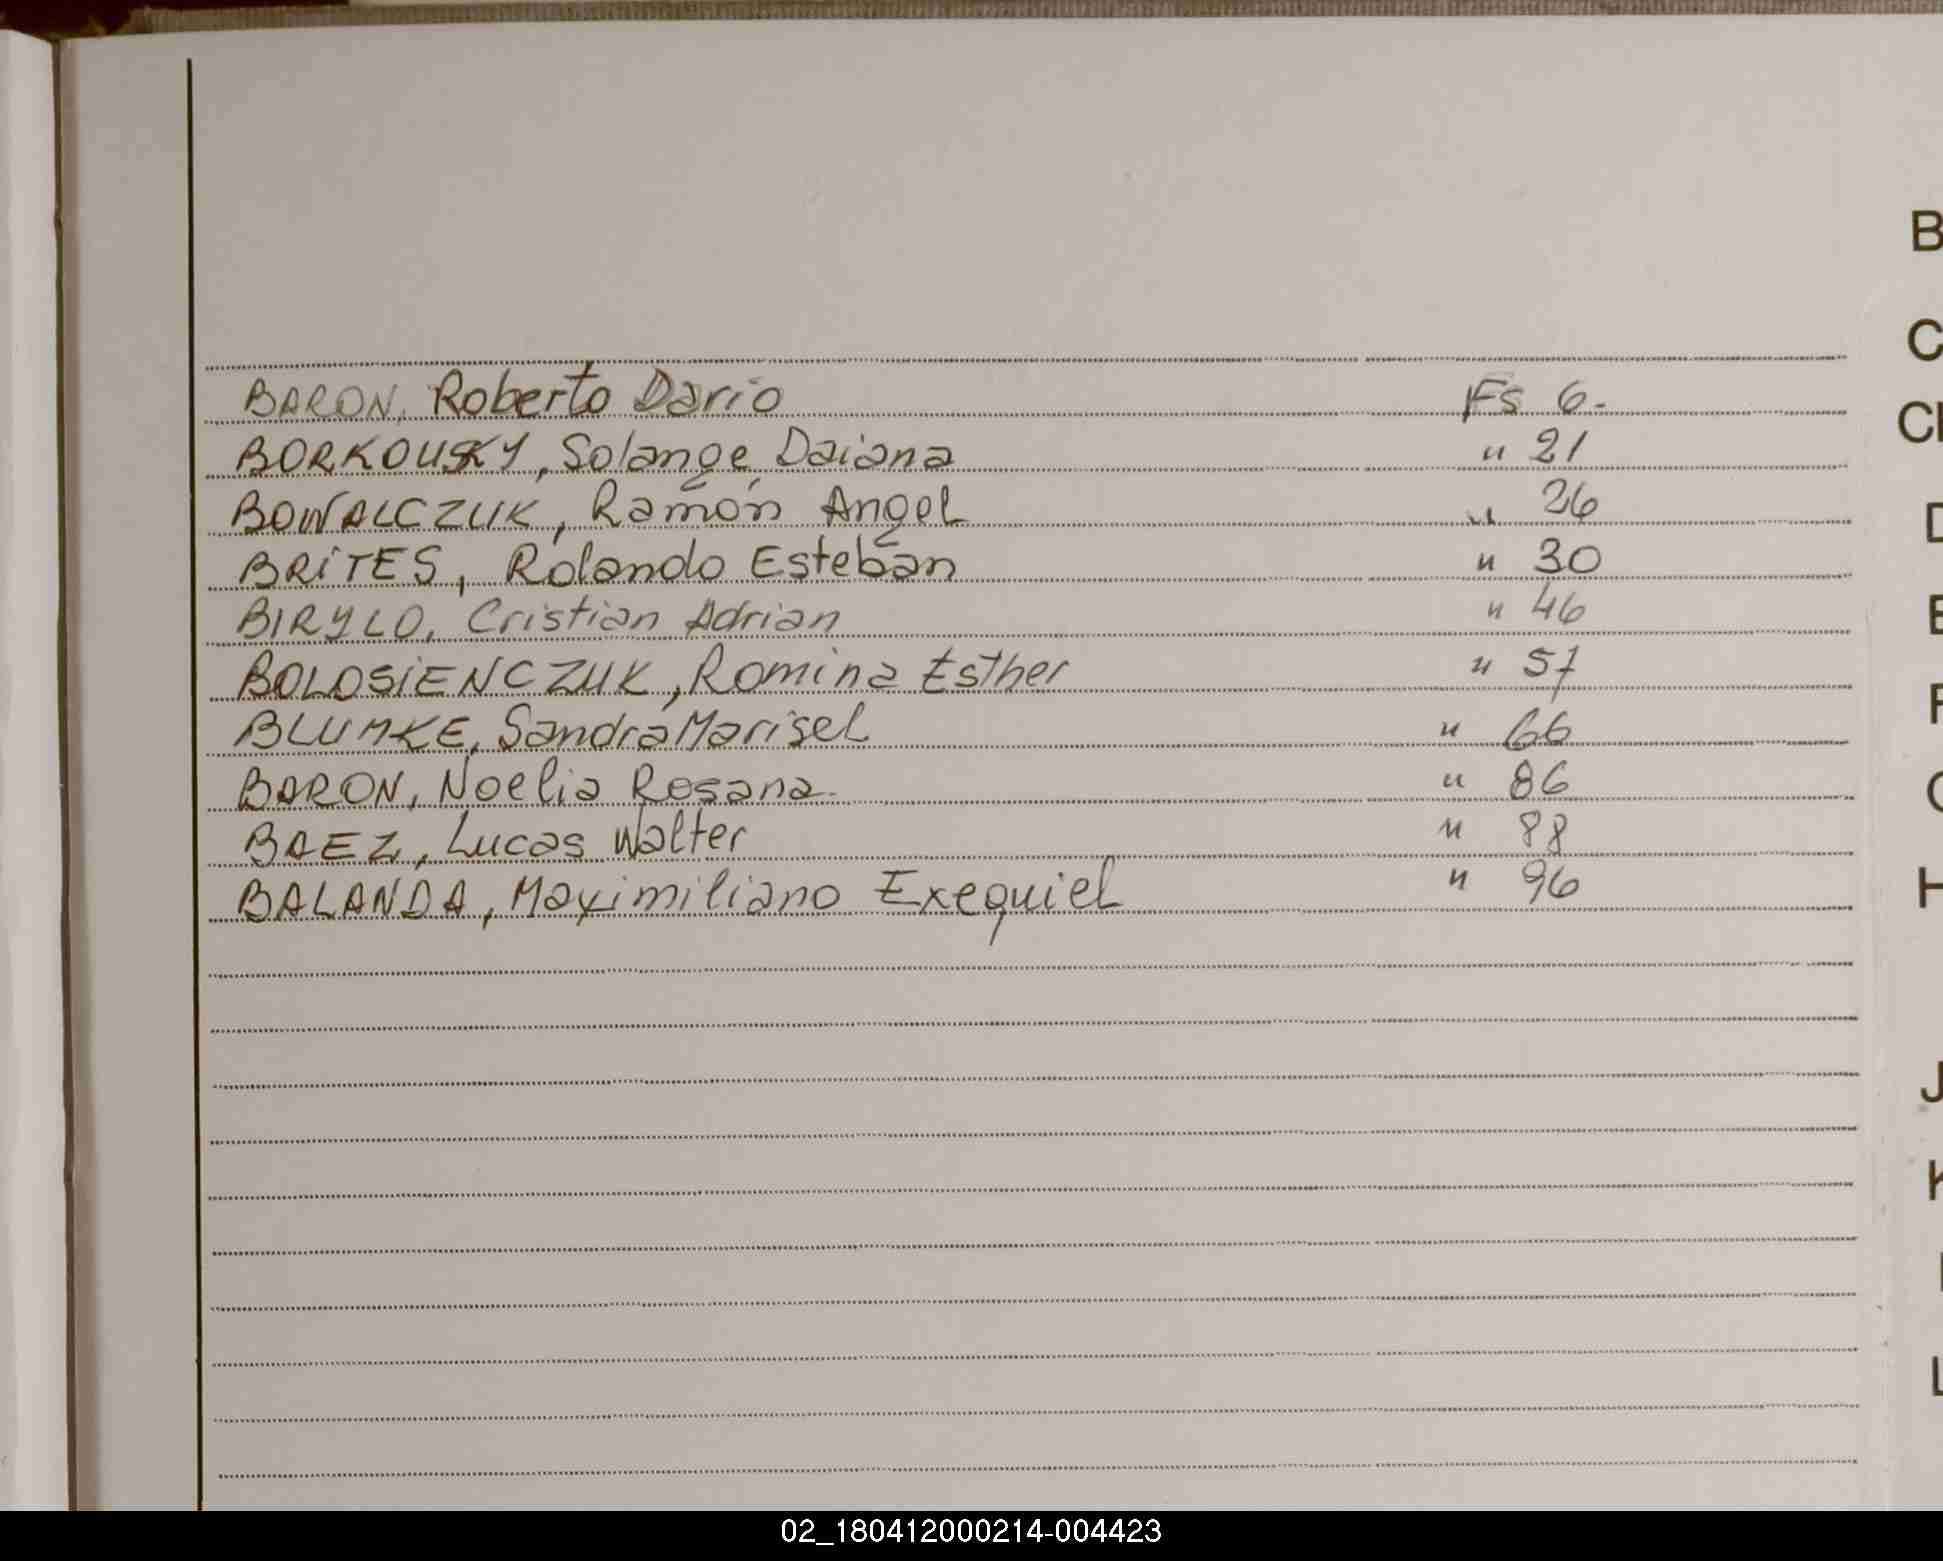 BARON, Roberto Dario Fs 6.-
BORKOUSKY, Solange, Daiana " 21
BOWALCZUK, Ramón Angel " 26
BRITES, Rolando Esteban " 30
BIRYLO, Cristian Adrian " 46
BOLOSIENCZUK, Romina Esther " 57
BLUMKE, Sandra Marisel " 66
BARON, Noelia Rosana. " 86
BAEZ, Lucas Walter " 88
BALANDA, Maximiliano Exequiel " 96
B
C
J
H
02_180412000214-004423